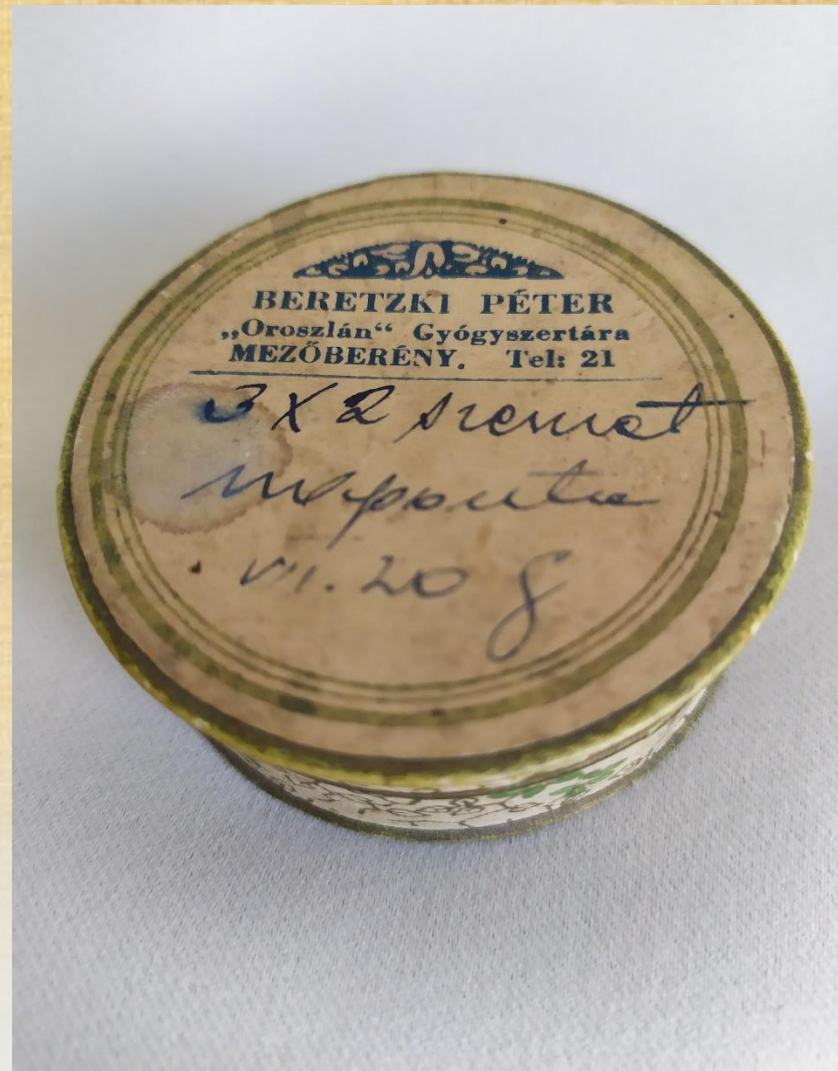 BERETZKI PÉTER
„Oroszlán“ Gyógyszertára
MEZŐBERÉNY. Tel: 21
3 X 2 szemet
naponta
VI. 20